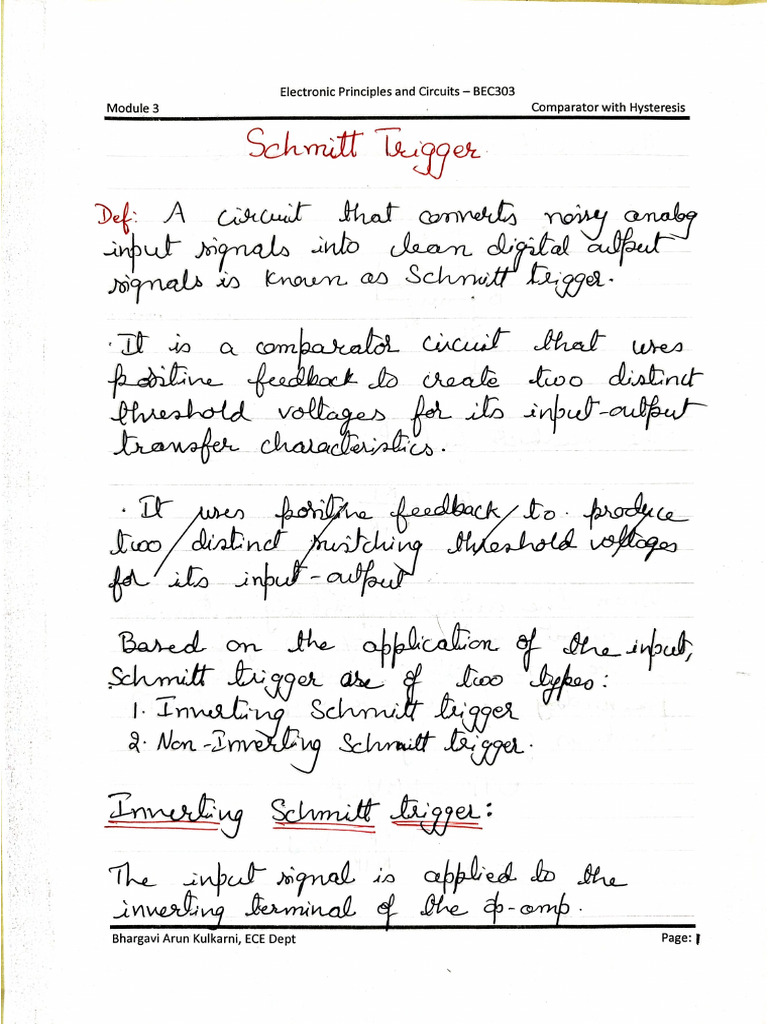 Electronic Principles and Circuits – BEC303
Module 3 Comparator with Hysteresis
Schmitt Trigger.
Def: A circuit that converts noisy analog
input signals into clean digital output
signals is known as Schmitt trigger.
· It is a comparator circuit that uses
positive feedback to create two distinct
threshold voltages for its input-output
transfer characteristics.
· It uses positive feedback to produce
two distinct switching threshold voltages
for its input-output
Based on the application of the input,
Schmitt trigger are of two types:
1. Inverting Schmitt trigger
2. Non-Inverting Schmitt trigger.
Inverting Schmitt trigger:
The input signal is applied to the
inverting terminal of the op-amp.
Bhargavi Arun Kulkarni, ECE Dept Page: 1